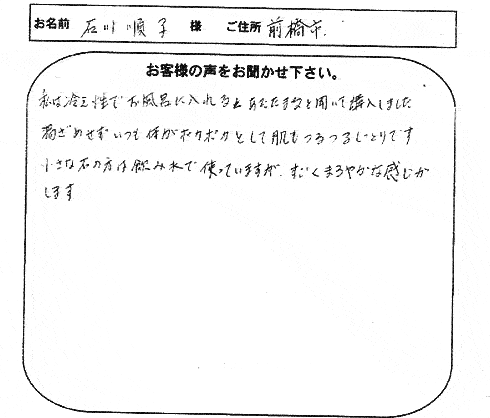 お名前 石川順子 様 ご住所 前橋市.
お客様の声をお聞かせ下さい。
私は冷え性でお風呂に入れるとあたたまると聞いて購入しました
湯ざめせずいつも体がポカポカとして肌もつるつるしとりです
小さな石の方は飲み水で使っていますが、すごくまろやかな感じが
します